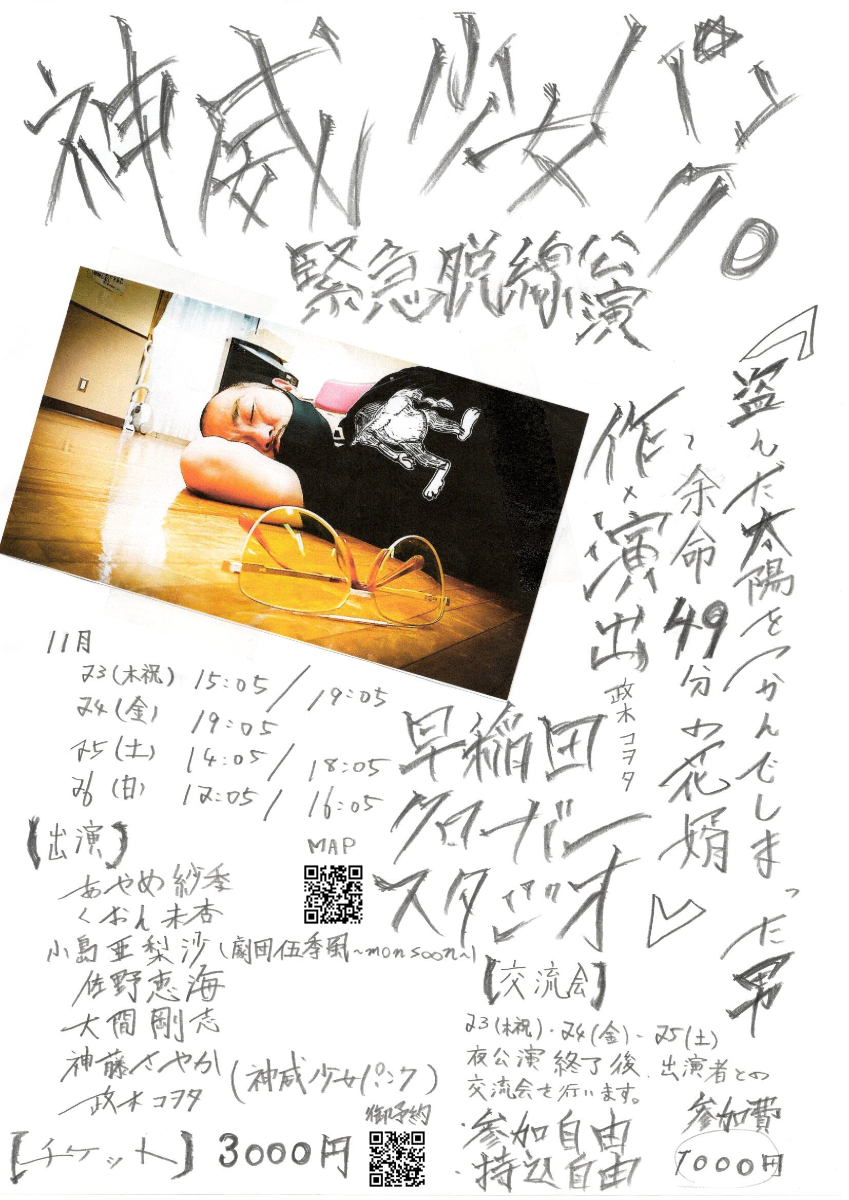 神威少女パンク。
緊急脱線公演
『盗んだ太陽をつかんでしまった男
~余命49分の花婿』
作×演出
政木コヲタ
早稲田
クローバー
スタジオ
11月
23(木祝) 15:05/19:05
24(金) 19:05
25(土) 14:05/18:05
26(日) 12:05/16:05
MAP
【出演】
あやめ紗季
くおん未杏
小島亜梨沙(劇団伍季風~monsoon~)
佐野恵海
大間剛志
神藤さやか
政木コヲタ
(神威少女パンク)
【チケット】3000円
御予約
【交流会】
23(木祝)・24(金)・25(土)
夜公演終了後、出演者との
交流会を行います。
・参加自由
・持込自由
参加費
1000円